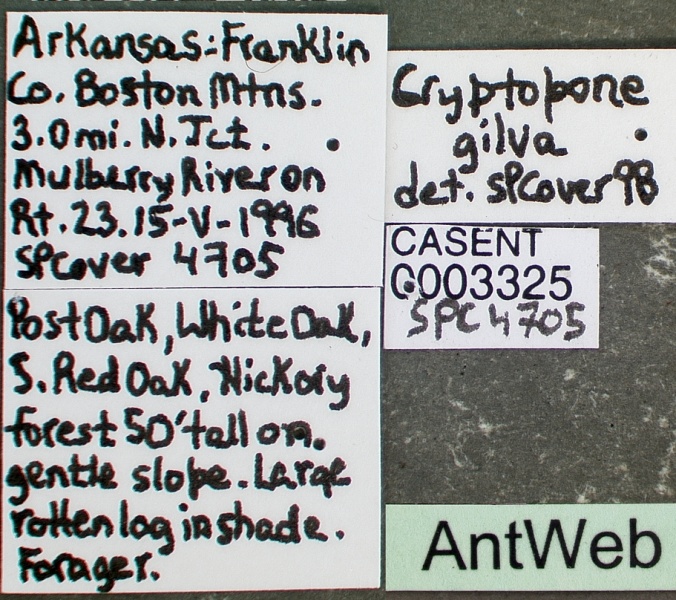 Arkansas: Franklin
Co. Boston Mtns.
3.0mi. N. Jct.
Mulberry River on
Rt. 23. 15-V-1996
SPCover 4705
Post Oak, White Oak,
S. Red Oak, Hickory
forest 50' tall on
gentle slope. Large
rotten log in shade.
Forager.
Cryptopone
gilva
det. SPCover 98
CASENT
0003325
SPC 4705
AntWeb